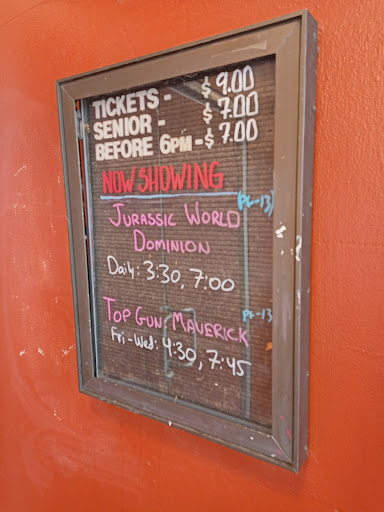 TICKETS - $ 9.00
SENIOR - $ 7.00
BEFORE 6PM - $ 7.00
NOW SHOWING
(PG-13)
JURASSIC WORLD
DOMINION
Daily: 3:30, 7:00
PG-13
TOP GUN: MAVERICK
Fri-Wed: 4:30, 7:45